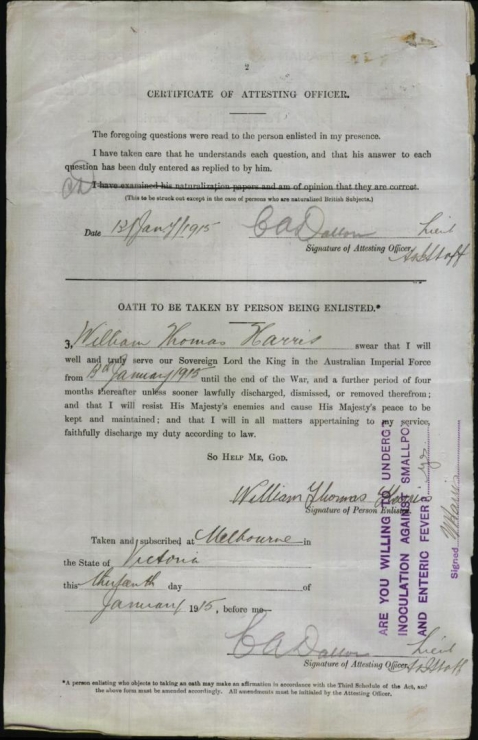 2
CERTIFICATE OF ATTESTING OFFICER.
The foregoing questions were read to the person enlisted in my presence.
I have taken care that he understands each question, and that his answer to each
question has been duly entered as replied to by him.
I have examined his naturalization papers and am of opinion that they are correct.
(This to be struck out except in the case of persons who are naturalized British Subjects.)
Date 13/Jany/1915 C A Dallon Lieut
Signature of Attesting Officer.
OATH TO BE TAKEN BY PERSON BEING ENLISTED.*
I, William Thomas Harris swear that I will
well and truly serve our Sovereign Lord the King in the Australian Imperial Force
from January 1915 until the end of the War, and a further period of four
months thereafter unless sooner lawfully discharged, dismissed, or removed therefrom;
and that I will resist His Majesty's enemies and cause His Majesty's peace to be
kept and maintained; and that I will in all matters appertaining to my service,
faithfully discharge my duty according to law.
SO HELP ME, GOD.
William Thomas Harris
Signature of Person Enlisted.
Taken and subscribed at Melbourne in
the State of Victoria
this thirteenth day of
January 1915, before me—
C A Dallon Lieut
Signature of Attesting Officer.
*A person enlisting who objects to taking an oath may make an affirmation in accordance with the Third Schedule of the Act, and
the above form must be amended accordingly. All amendments must be initialed by the Attesting Officer.
ARE YOU WILLING TO UNDERGO
INOCULATION AGAINST SMALLPOX
AND ENTERIC FEVER? yes
Signed W Harris